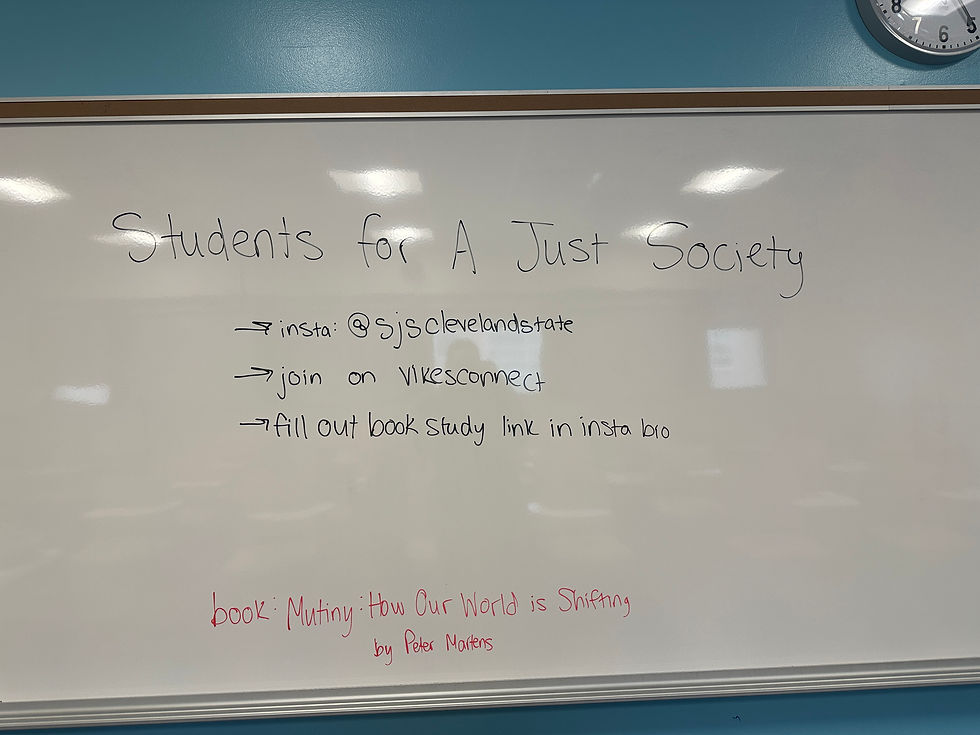 8
7
6
5
Students for A Just Society
→ insta: @sjsclevelandstate
→ join on vikesconnect
→ fill out book study link in insta bio
book: Mutiny: How Our World is Shifting
by Peter Martens